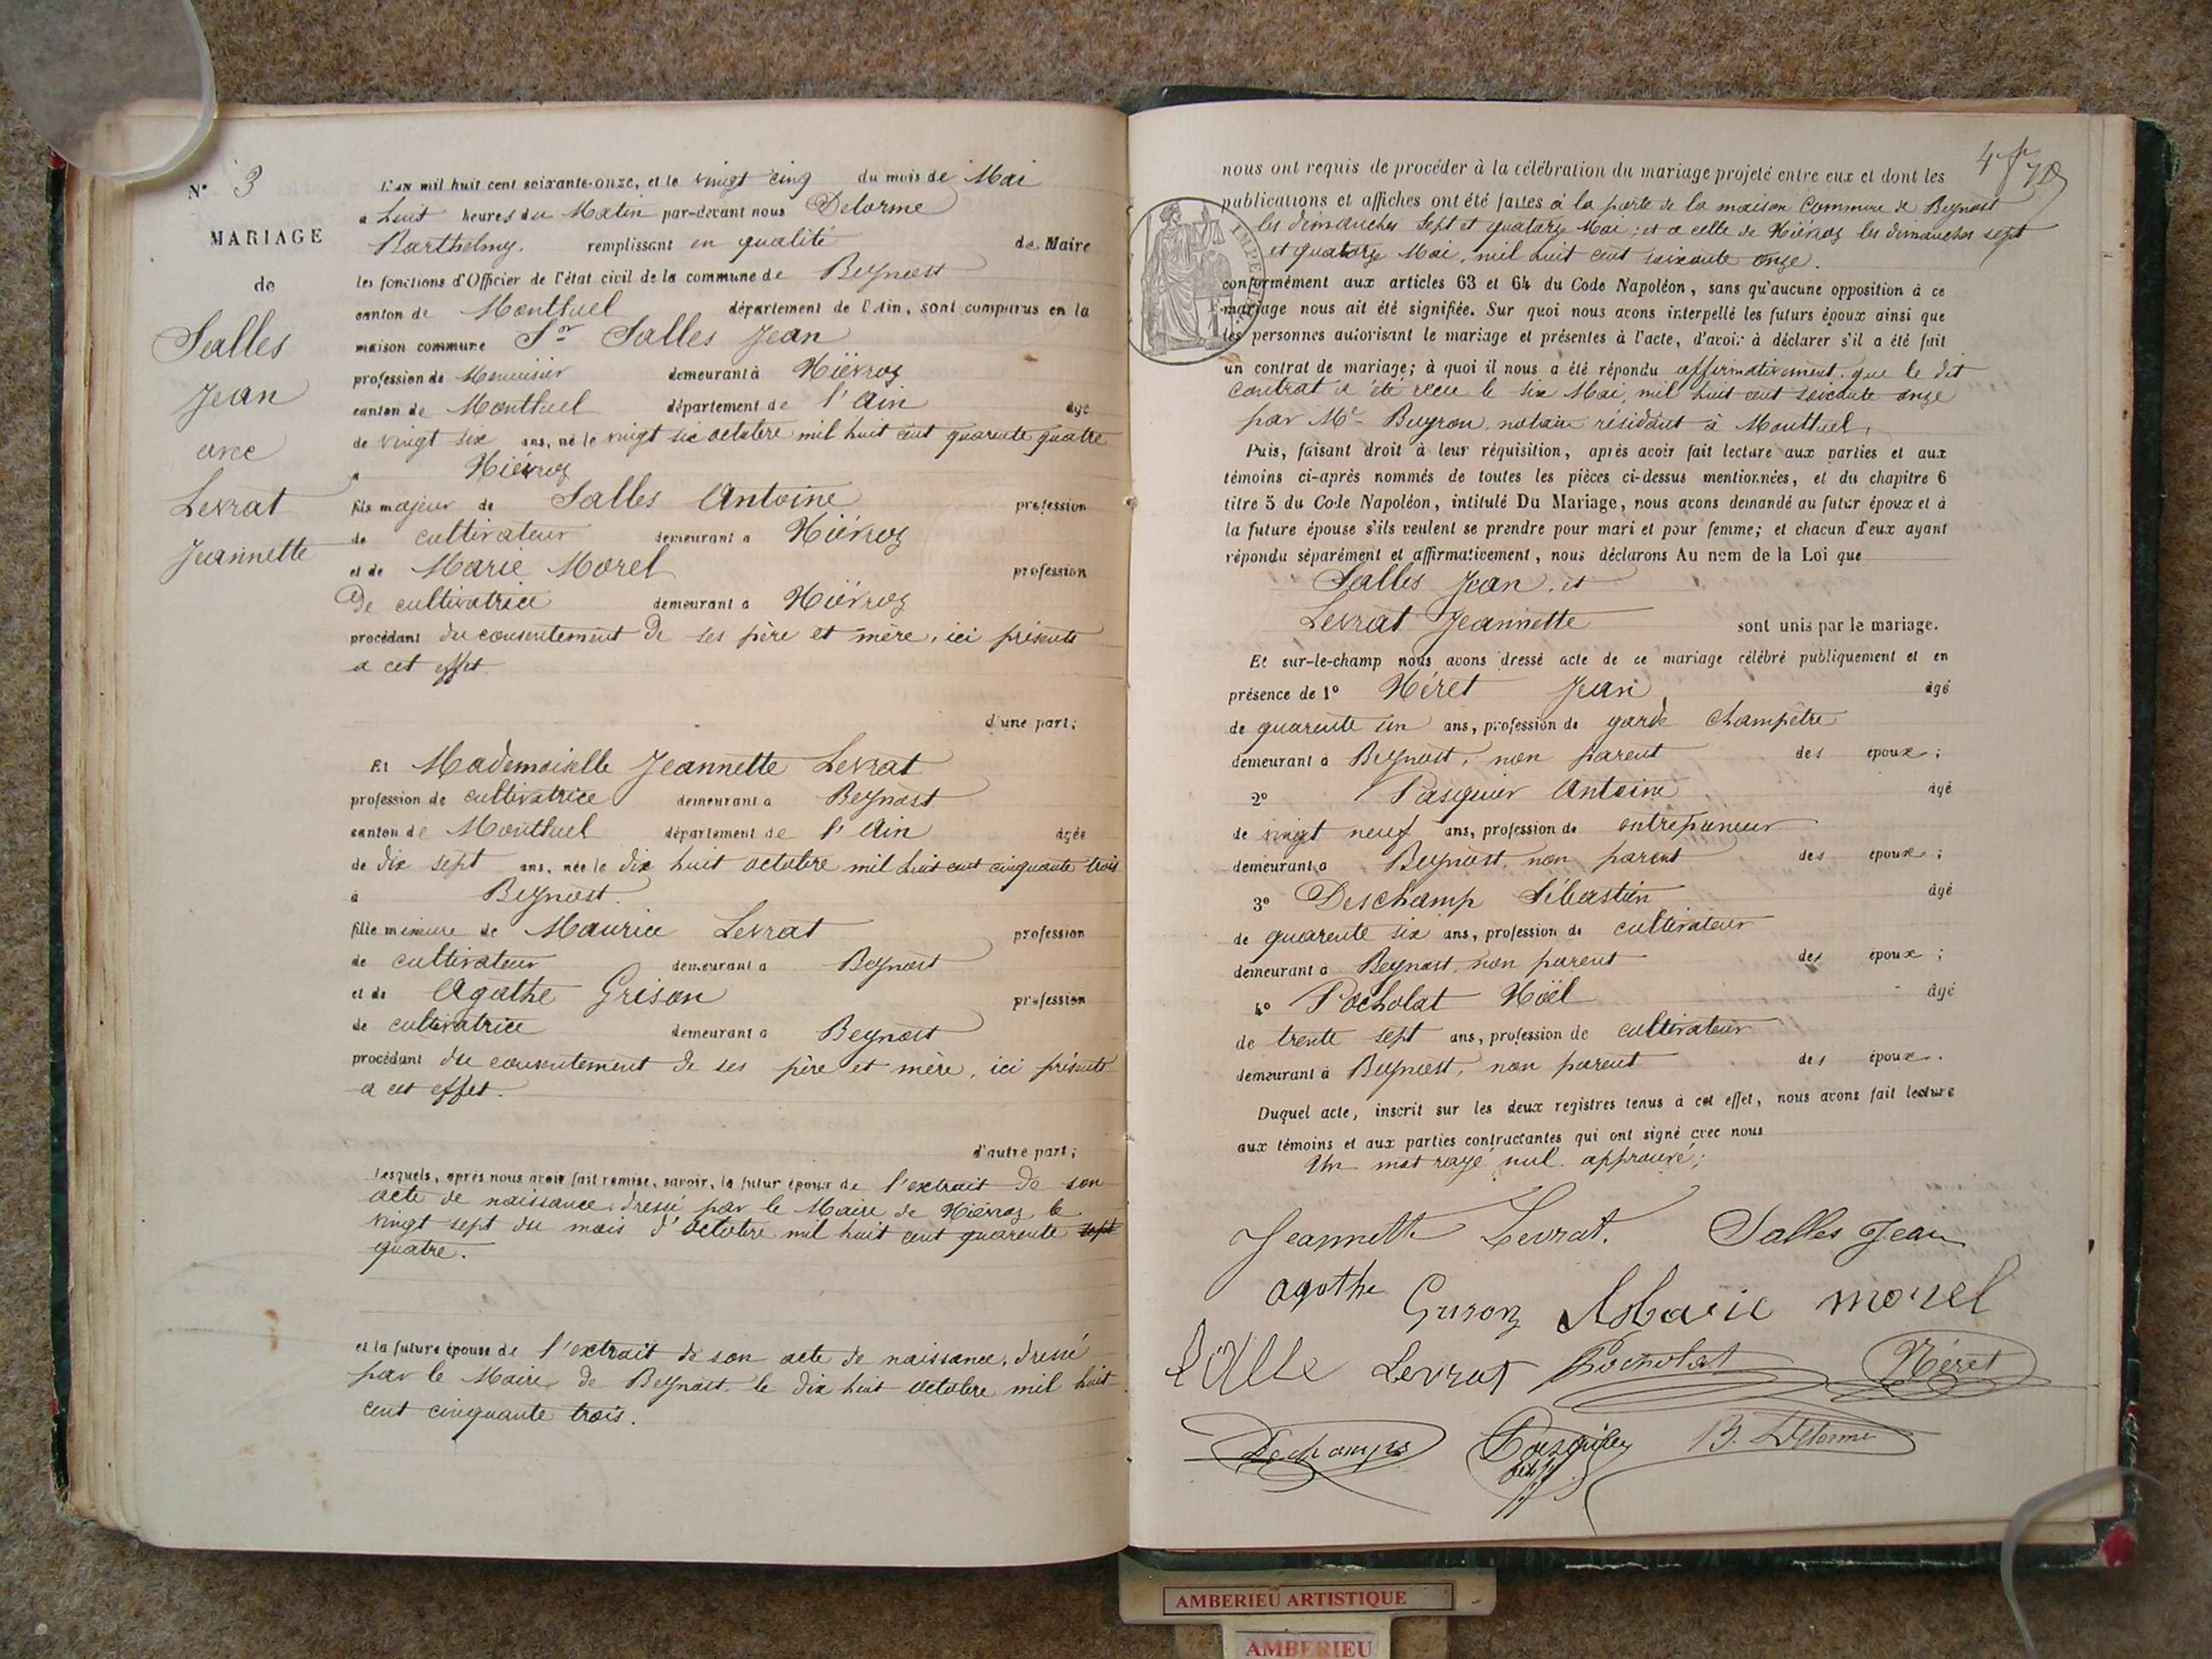 N° 3
MARIAGE
de
Salles
Jean
avec
Levrat
Jeannette
L'AN mil huit cent soixante-onze, et le vingt cinq du mois de Mai
a huit heures du Matin par-devant nous Delorme
Barthelmy, remplissant en qualité de Maire
les fonctions d'Officier de l'état civil de la commune de Beynost
canton de Montluel département de l'Ain, sont comparus en la
maison commune Sr Salles Jean
profession de Menuisier demeurant à Niévroz
canton de Montluel département de l'Ain âgé
de vingt six ans, né le vingt six octobre mil huit cent quarente quatre
a Niévroz
fils majeur de Salles Antoine profession
de cultivateur demeurant a Niévroz
et de Marie Morel profession
De cultivatrice demeurant a Niévroz
procédant du consentement de ses père et mère, ici présents
a cet effet
d'une part;
Et Mademoiselle Jeannette Levrat
profession de cultivatrice demeurant a Beynost
canton de Montluel département de l'Ain âgée
de dix sept ans, née le dix huit octobre mil huit cent cinquante trois
à Beynost.
fille mineure de Maurice Levrat profession
de cultivateur demeurant a Beynost
et de Agathe Grison profession
de cultivatrice demeurant a Beynost
procédant du consentement de ses père et mère, ici présents
a cet effet.
d'autre part;
Lesquels, après nous avoir fait remise, savoir, le futur époux de l'extrait de son
acte de naissance, dressé par le Maire de Niévroz le
vingt sept du mois d'octobre mil huit cent quarente sept
quatre.
et la future épouse de l'extrait de son acte de naissance, dressé
par le Maire de Beynost le dix huit octobre mil huit
cent cinquante trois.
nous ont requis de procéder à la célébration du mariage projeté entre eux et dont les
publications et affiches ont été faites à la porte de la maison Commune de Beynost
les dimanches sept et quatorze Mai; et a celle de Niévroz les dimanches sept
et quatorze Mai, mil huit cent soixante onze.
conformément aux articles 63 et 64 du Code Napoléon, sans qu'aucune opposition à ce
mariage nous ait été signifiée. Sur quoi nous avons interpellé les futurs époux ainsi que
les personnes autorisant le mariage et présentes à l'acte, d'avoir à déclarer s'il a été fait
un contrat de mariage; à quoi il nous a été répondu affirmativement. que le dit
contrat a été reçu le six Mai, mil huit cent soixante onze
par Me Buyron, notaire résidant à Montluel,
Puis, faisant droit à leur réquisition, après avoir fait lecture aux parties et aux
témoins ci-après nommés de toutes les pièces ci-dessus mentionnées, et du chapitre 6
titre 5 du Code Napoléon, intitulé Du Mariage, nous avons demandé au futur époux et à
la future épouse s'ils veulent se prendre pour mari et pour femme; et chacun d'eux ayant
répondu séparément et affirmativement, nous déclarons Au nom de la Loi que
Salles Jean, et
Levrat Jeannette sont unis par le mariage.
Et sur-le-champ nous avons dressé acte de ce mariage célébré publiquement et en
présence de 1° Néret Jean, âgé
de quarente un ans, profession de garde champêtre
demeurant à Beynost, non parent des époux;
2° Pasquier Antoine âgé
de vingt neuf ans, profession de entrepreneur
demeurant a Beynost, non parent des époux;
3° Deschamp Sébastien âgé
de quarente six ans, profession de cultivateur
demeurant à Beynost, non parent des époux;
4° Pocholat Noël âgé
de trente sept ans, profession de cultivateur
demeurant à Beynost, non parent des époux.
Duquel acte, inscrit sur les deux registres tenus à cet effet, nous avons fait lecture
aux témoins et aux parties contractantes qui ont signé avec nous
Un mot rayé nul. approuvé;
Jeannette Levrat. Salles Jean
agathe Grison Marie morel
Salle Levrat Pocholat Néret
Dechamps Pasquier B. Delorme
AMBERIEU ARTISTIQUE
AMBERIEU